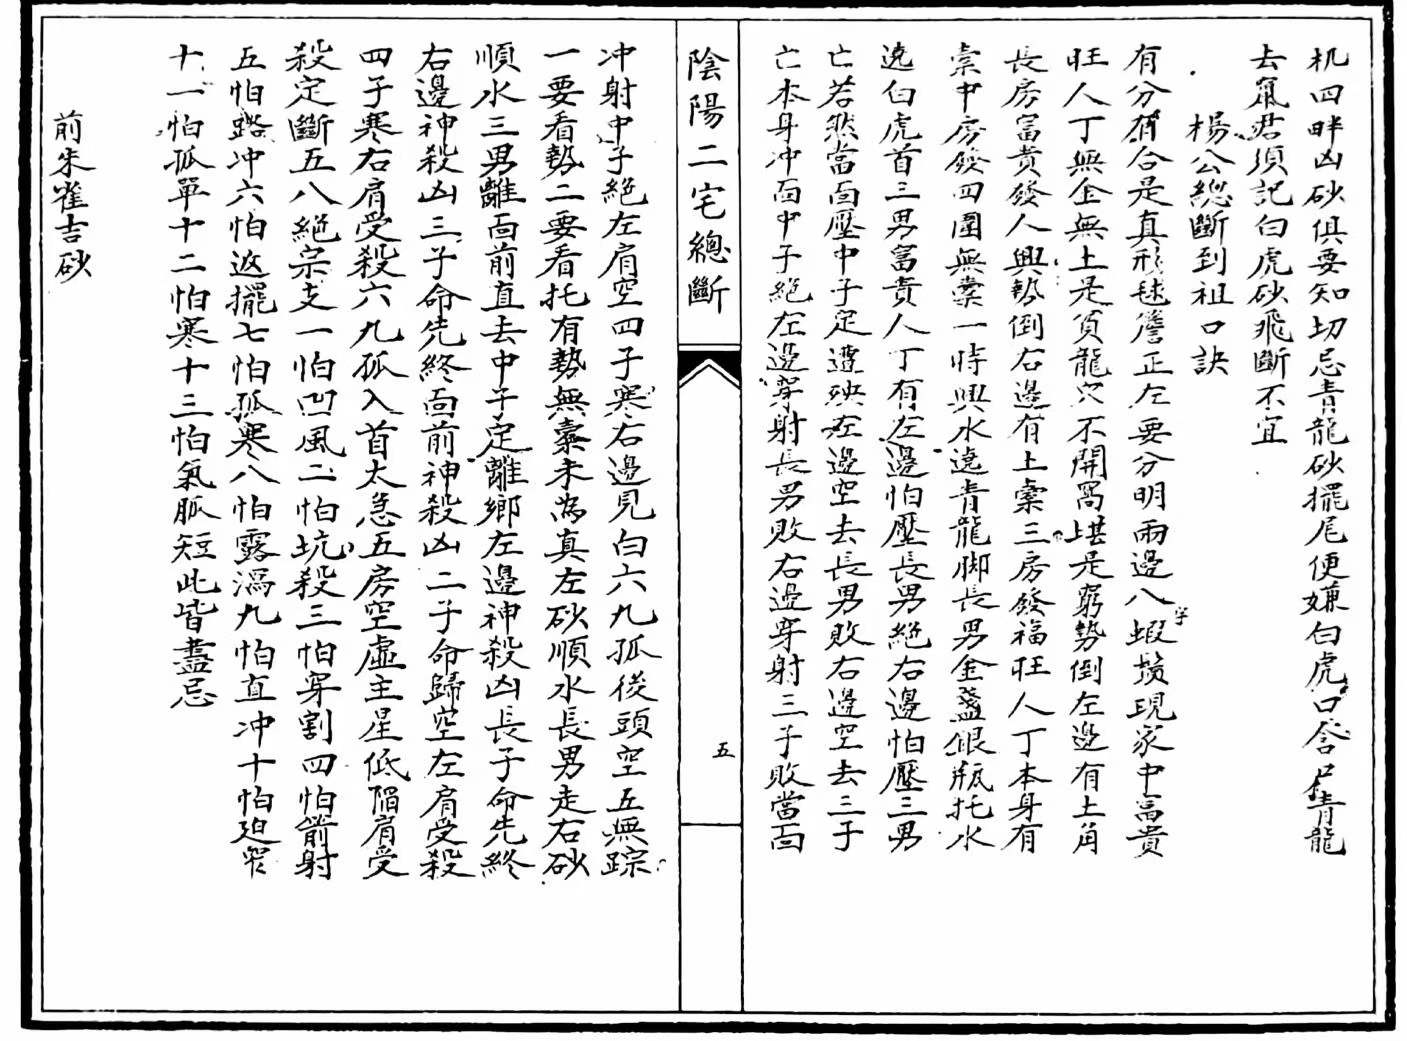 机四畔凶砂俱要知切忌青龍砂擺尾便嫌白虎口含尸青龍
去鼠君須記白虎砂飛斷不宜
楊公總斷到祖口訣
有分有合是真形毬簷正左要分明兩邊八字蝦鬚現家中富貴
旺人丁無金無土是貧龍穴不開窩堪是窮勢倒左邊有土角
長房富貴發人興勢倒右邊有土橐三房發福旺人丁本身有
橐中房發四圍無橐一時興水遶青龍脚長男金盞銀瓶托水
遶白虎首三男富貴人丁有左邊怕壓長男絕右邊怕壓三男
亡若然當面壓中子定遭殃左邊空去長男敗右邊空去三子
亡本身冲面中子絕左邊穿射長男敗右邊穿射三子敗當面
陰陽二宅總斷
五
冲射中子絕左肩空四子寒右邊見白六九孤後頭空五無踪
一要看勢二要看托有勢無橐未為真左砂順水長男走右砂
順水三男離面前直去中子定離鄉左邊神殺凶長子命先終
右邊神殺凶三子命先終面前神殺凶二子命歸空左肩受殺
四子寒右肩受殺六九孤入首太急五房空虛主星低陷肩受
殺定斷五八絕宗支一怕凹風二怕坑殺三怕穿割四怕箭射
五怕路冲六怕返擺七怕孤寒八怕露瀉九怕直冲十怕廹窄
十一怕孤單十二怕寒十三怕氣脈短此皆盡忌
前朱雀吉砂